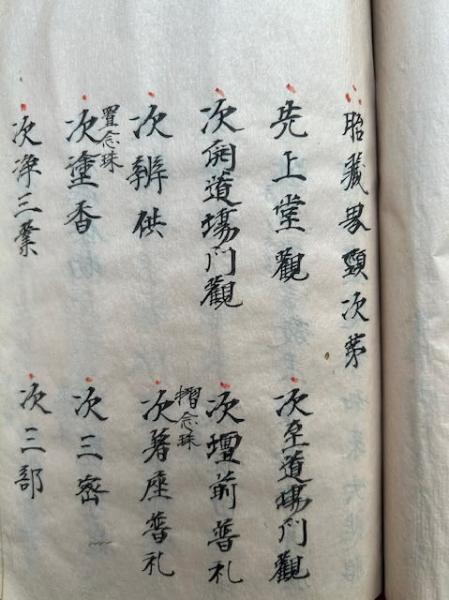 胎藏界頸次苐
先上堂觀
次至道場門觀
次開道場門觀
次壇前普礼
次辨供
摺念珠
次著座普礼
置念珠
次塗香
次三密
次淨三業
次三部